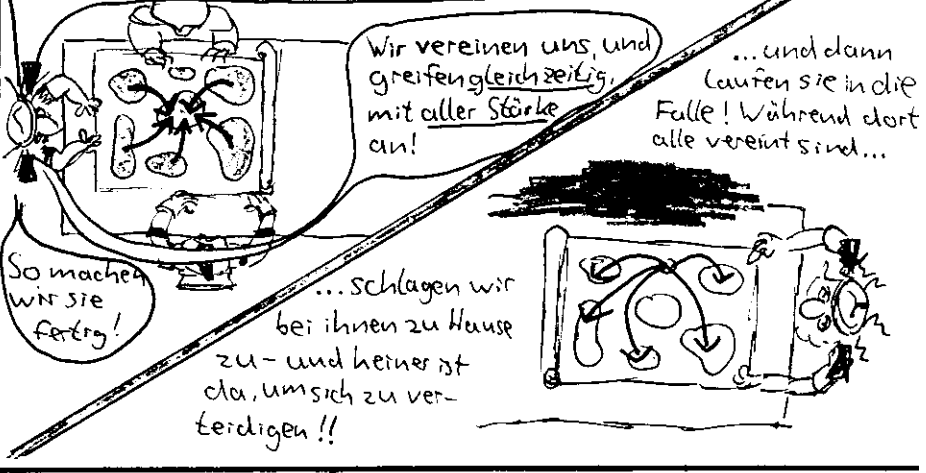 Wir vereinen uns, und
greifen gleichzeitig,
mit aller Stärke
an!
So machen
wir sie
fertig!
...und dann
laufen sie in die
Falle! Während dort
alle vereint sind...
...schlagen wir
bei ihnen zu Hause
zu - und keiner ist
da, um sich zu ver-
teidigen!!